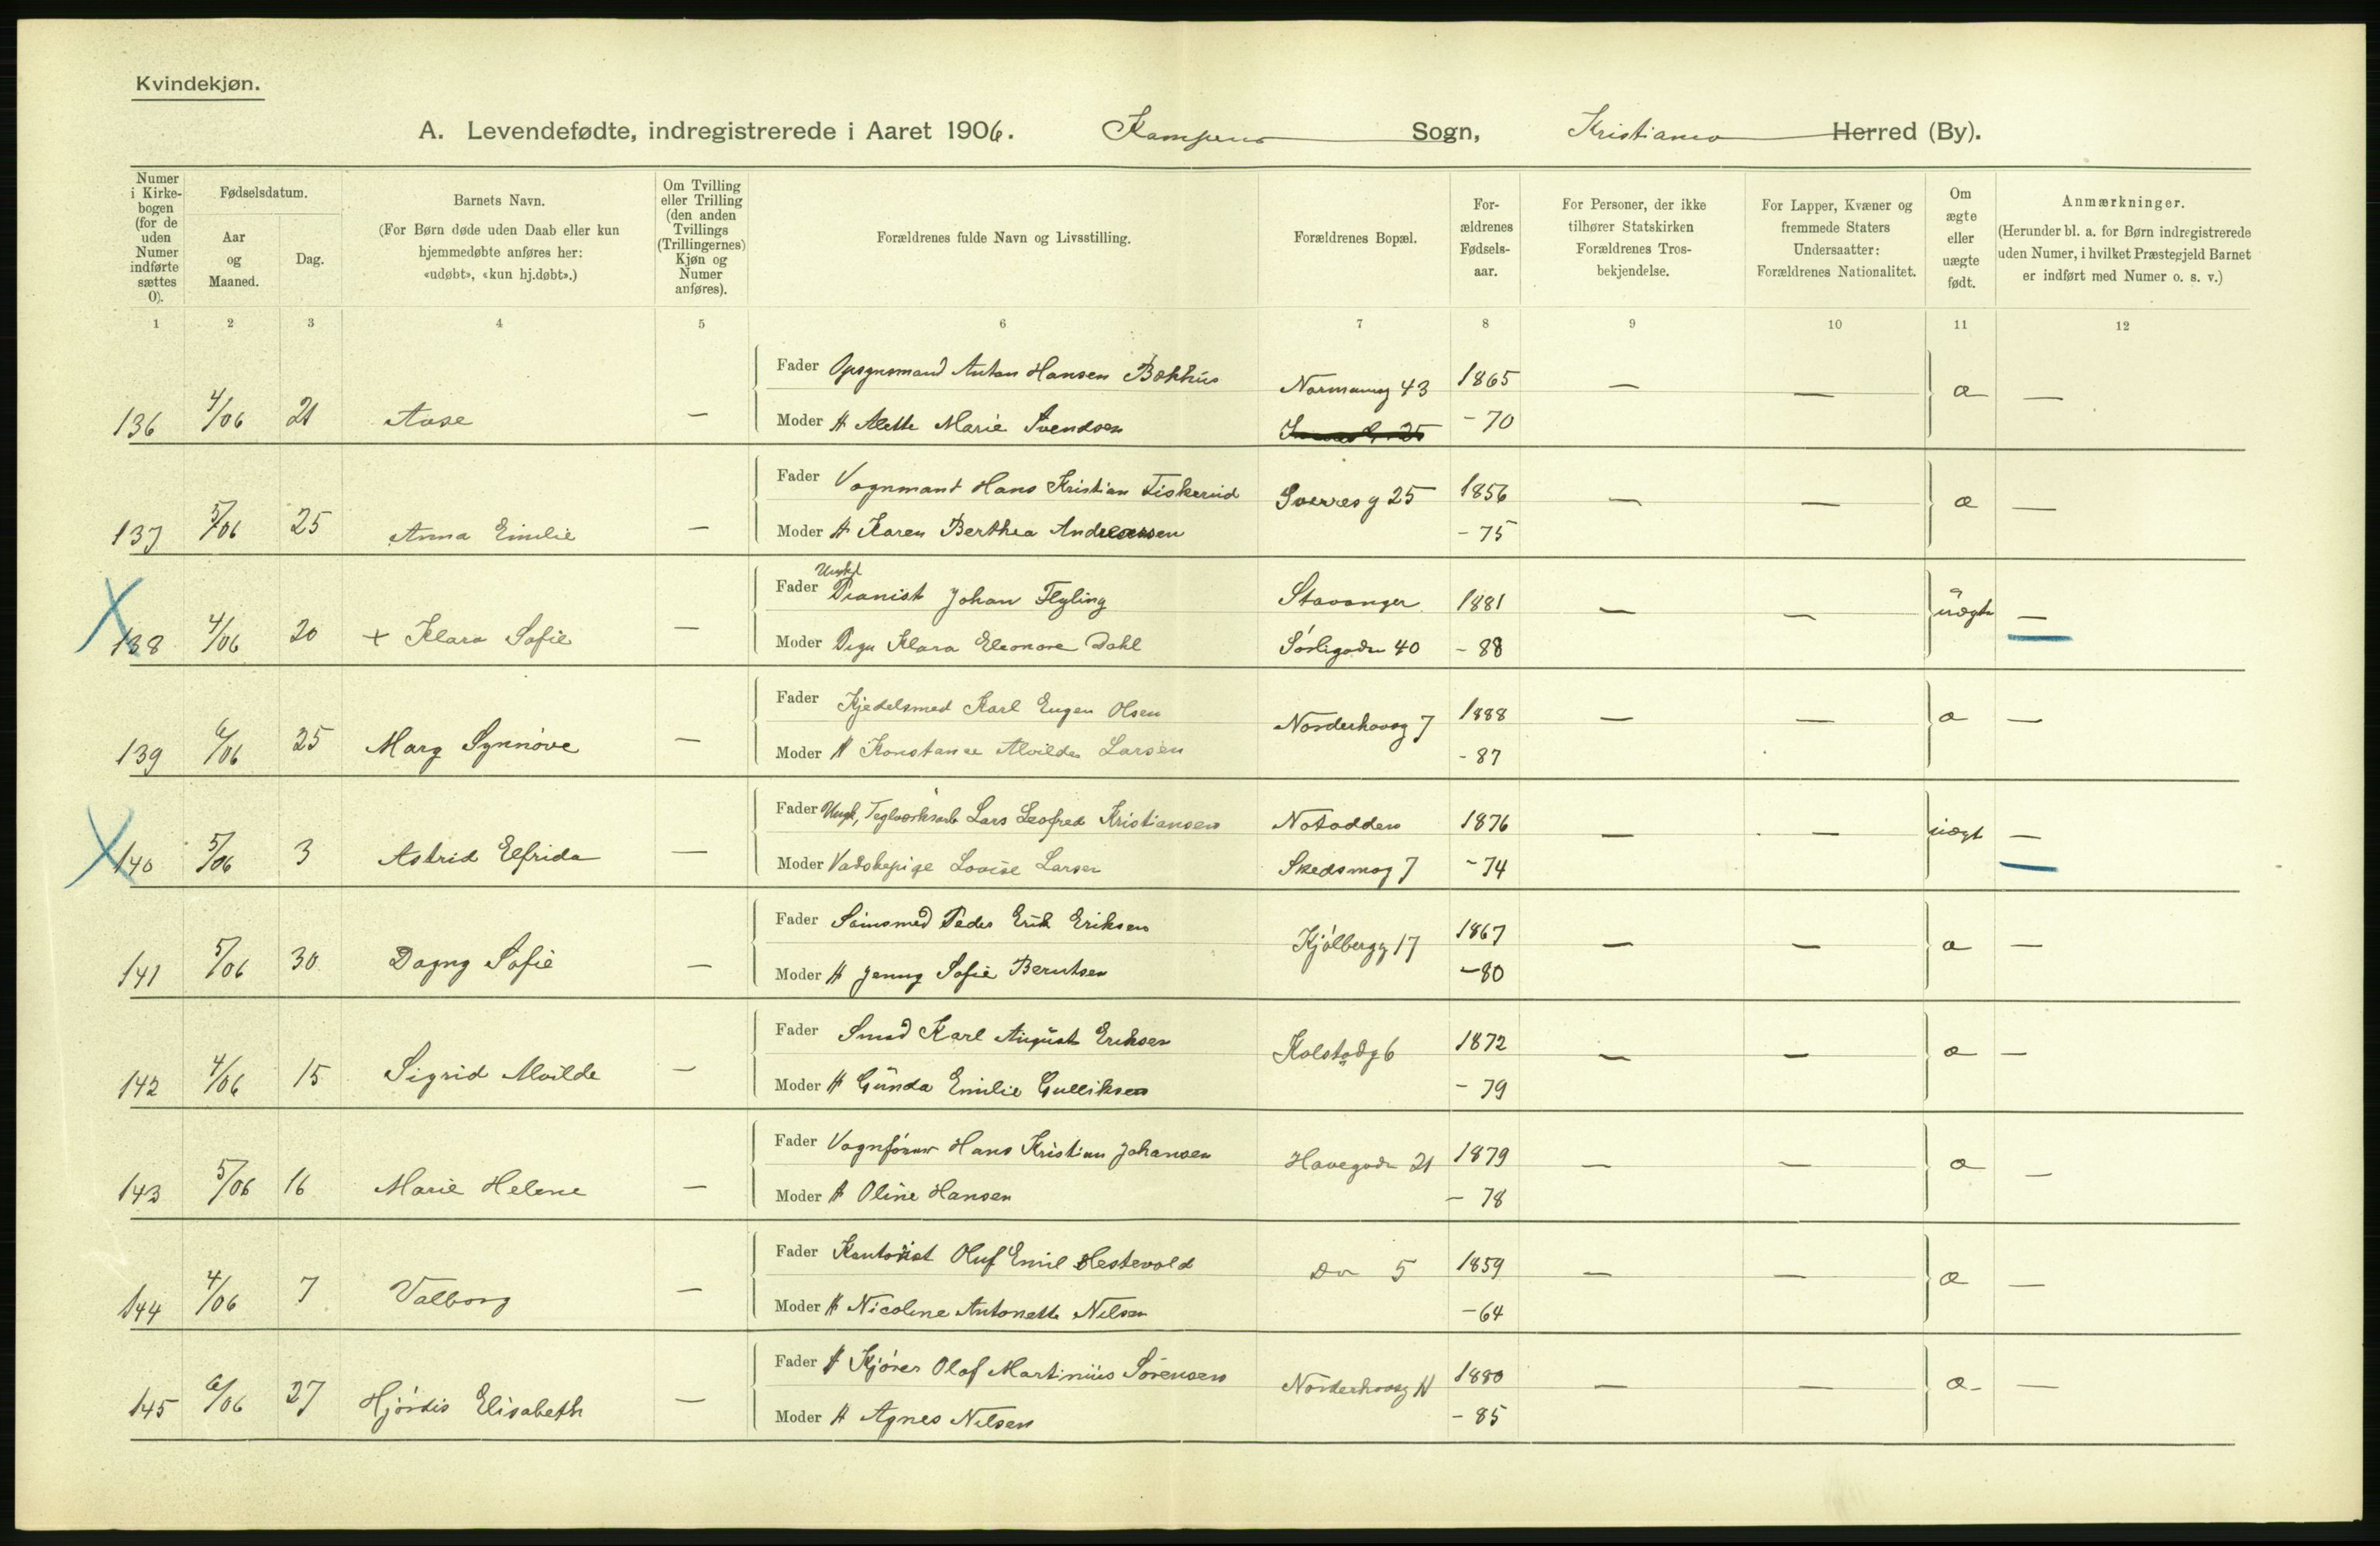 Kvindekjøn.
A. Levendefødte, indregistrerede i Aaret 1906. Kampens Sogn, Kristiania Herred (By).
Numer i Kirkebogen (for de uden Numer indførte sættes 0).
Fødselsdatum.
Aar og Maaned.
Dag.
Barnets Navn.
(For Børn døde uden Daab eller kun hjemmedøbte anføres her: «udøbt», «kun hj.døbt».)
Om Tvilling eller Trilling (den anden Tvillings (Trillingernes) Kjøn og Numer anføres).
Forældrenes fulde Navn og Livsstilling.
Forældrenes Bopæl.
Forældrenes Fødselsaar.
For Personer, der ikke tilhører Statskirken Forældrenes Trosbekjendelse.
For Lapper, Kvæner og fremmede Staters Undersaatter: Forældrenes Nationalitet.
Om ægte eller uægte født.
Anmærkninger.
(Herunder bl. a. for Børn indregistrerede uden Numer, i hvilket Præstegjeld Barnet er indført med Numer o. s. v.)
1 2 3 4 5 6 7 8 9 10 11 12
Fader Opsynsmand Anton Hansen Bakhus Normanng 43 1865 — — æ —
136 4/06 21 Aase — Moder H Alette Marie Svendsen - 70
Fader Vognmand Hans Kristian Fiskerud Sverresg 25 1856 — — æ —
137 5/06 25 Anna Emilie — Moder H Karen Berthea Andreassen - 75
Ungk
Fader Pianist Johan Flyling Stavanger 1881 — — uægte —
138 4/06 20 + Klara Sofie — Moder Pige Klara Eleonore Dahl Sørligaden 40 - 88
Fader Kjedelsmed Karl Eugen Olsen Norderhovsg 7 1888 — — æ —
139 6/06 25 Mary Synnøve — Moder H Konstance Alvilde Larsen - 87
Fader Ungk, Teglverksarb Lars Leofred Kristiansen Notodden 1876 — — uægt —
140 5/06 3 Astrid Elfrida — Moder Vadskepige Lovise Larsen Skedsmog 7 - 74
Fader Peder Erik Eriksen Kjølbergg 17 1867 — — æ —
141 5/06 30 Dagny Sofie — Moder H Jenny Sofie Berntsen - 80
Fader Smed Karl August Eriksen Kolstadg 6 1872 — — æ —
142 4/06 15 Sigrid Alvilde — Moder H Gunda Emilie Gulliksen - 79
Fader Vognfører Hans Kristian Johansen Havegaden 21 1879 — — æ —
143 5/06 16 Marie Helene — Moder H Oline Hansen - 78
Fader Kontorist Oluf Emil Hestevold Do 5 1859 — — æ —
144 4/06 7 Valborg — Moder H Nicoline Antonette Nilsen - 64
Fader Kjører Olaf Martinius Sørensen Norderhovsg 11 1880 — — æ —
145 6/06 27 Hjørdis Elisabeth — Moder H Agnes Nilsen - 85